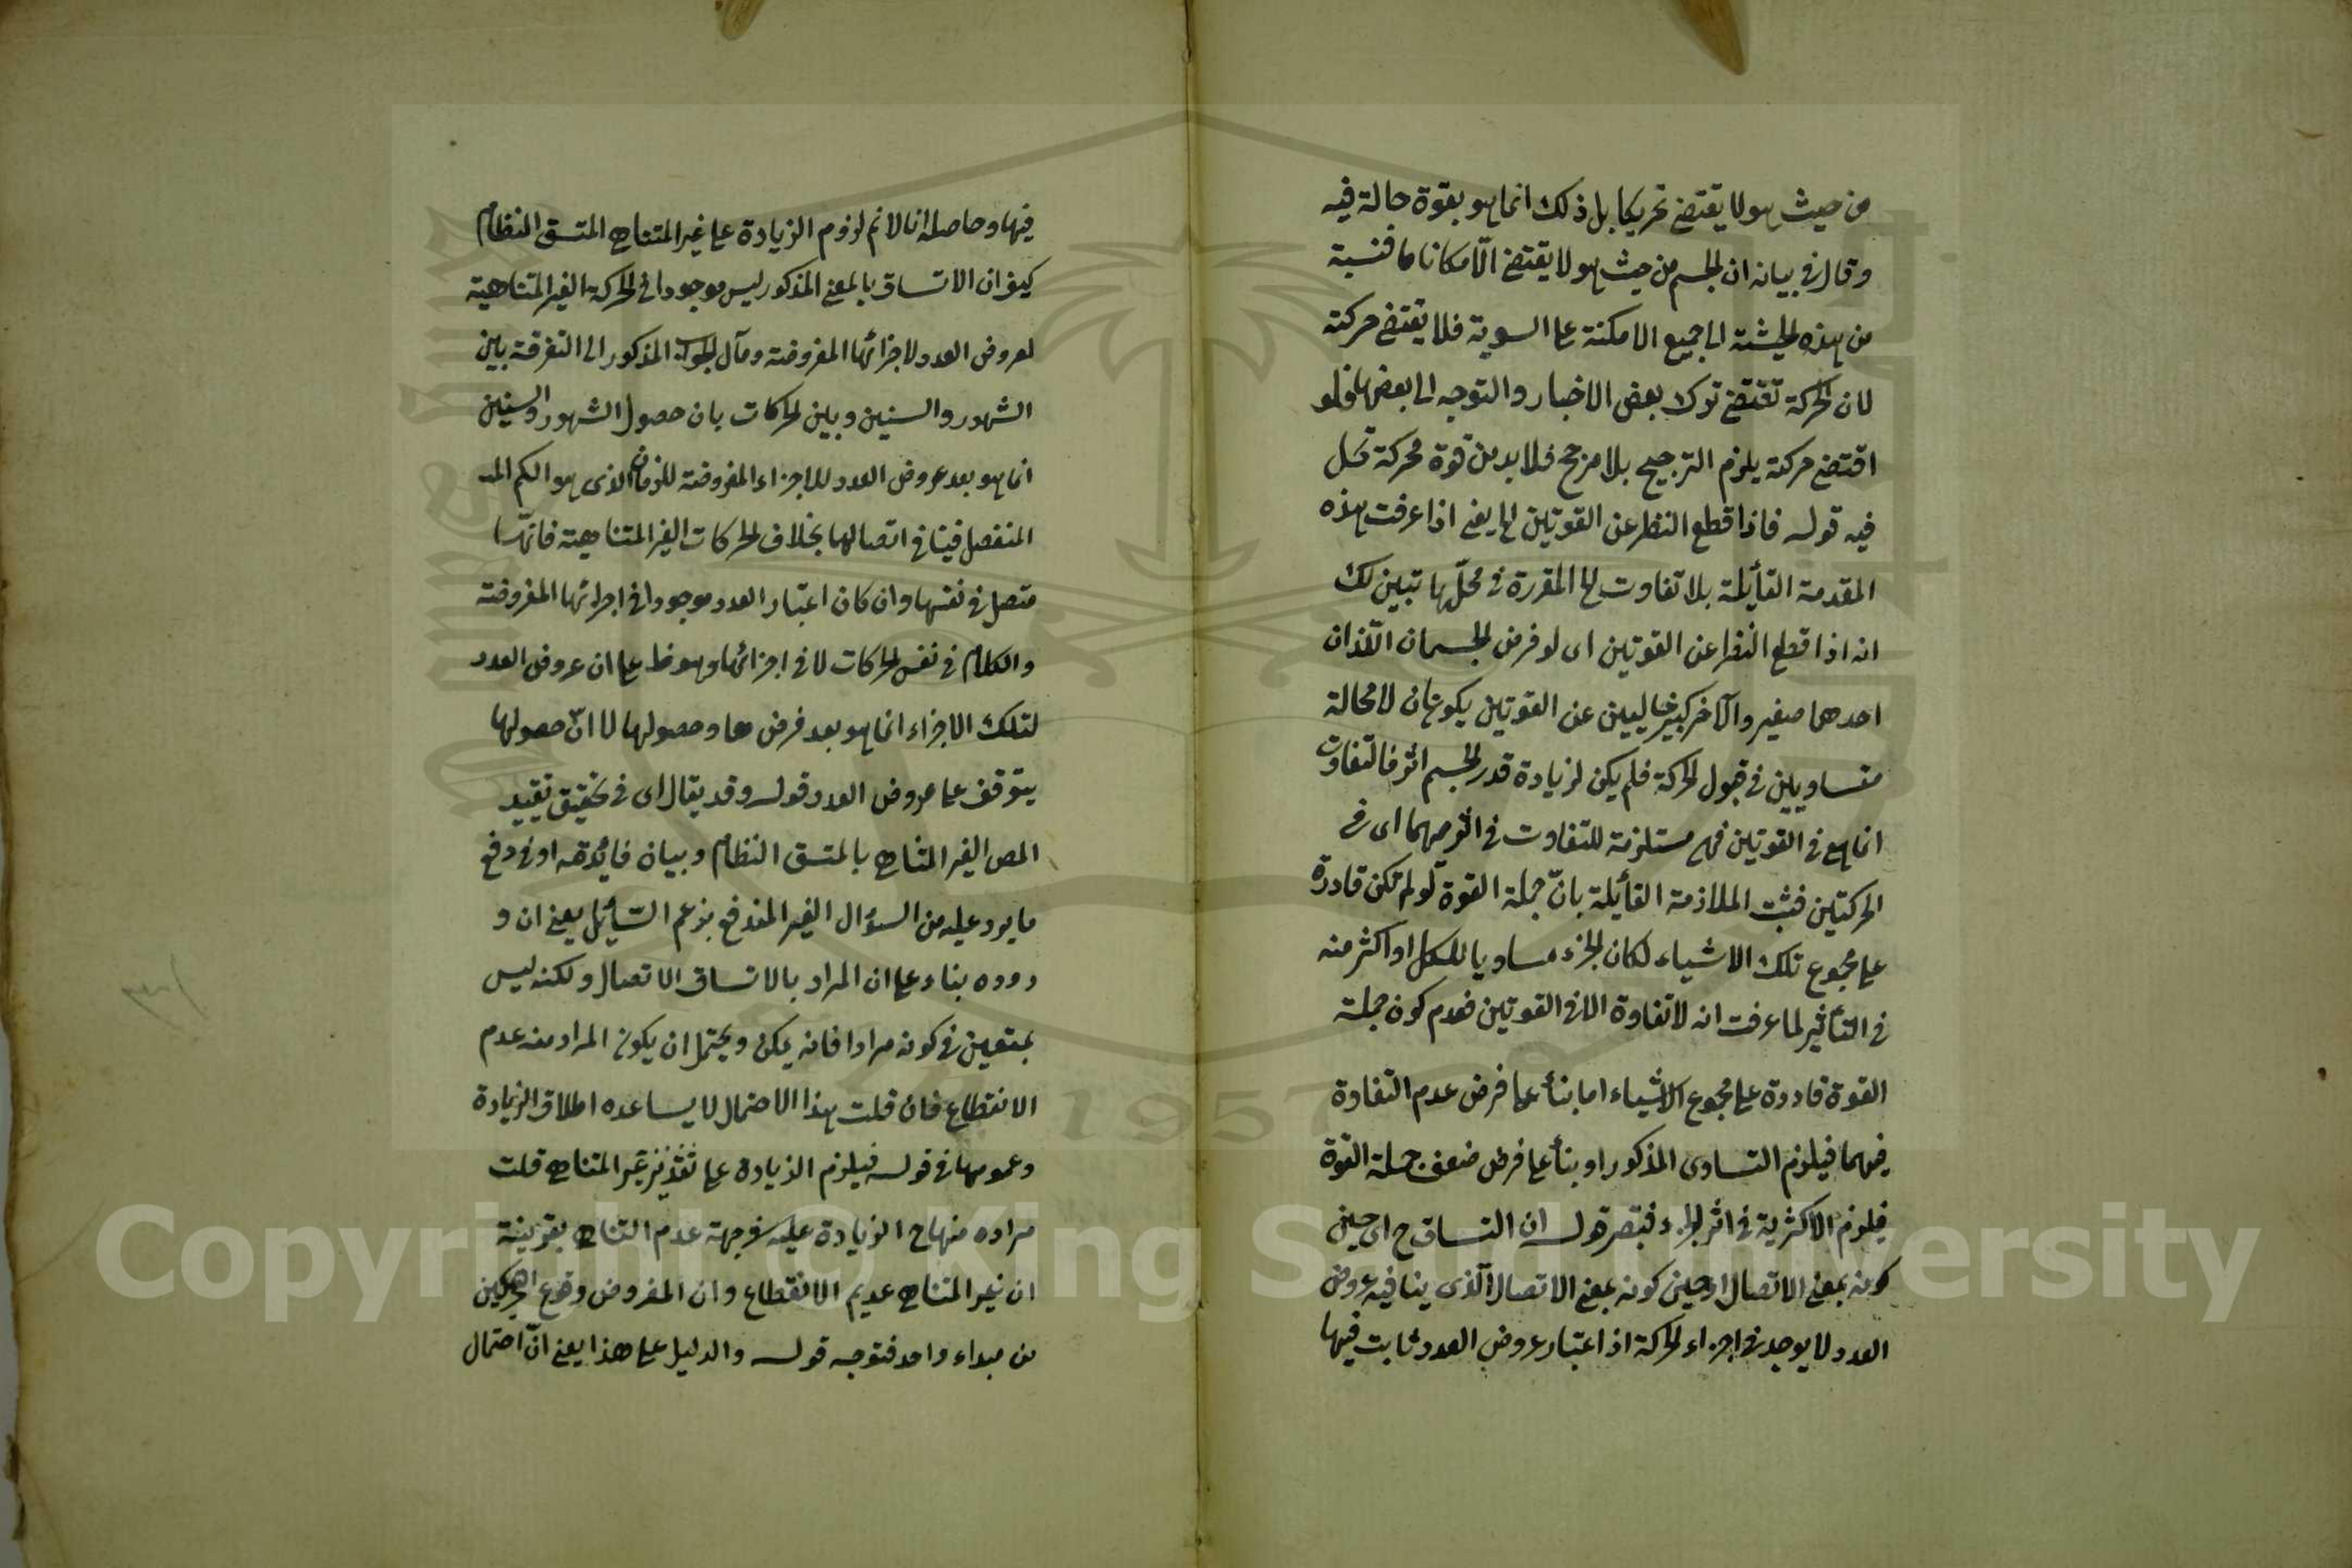 من حيث هو لا يقتضي تحريكا بل ذلك انما هو بقوة حالة فيه
وقال في بيانه ان الجسم من حيث هو لا يقتضي الّا مكانا ما فنسبة
من هذه الحيثية الى جميع الامكنة على السوية فلا يقتضي حركته
لان الحركة تقتضي ترك بعض الاخبار والتوجه الى بعضها فلو
اقتضى حركته يلزم الترجيح بلا مرجح فلا بد من قوة محركة تحل
فيه قوله فاذا قطع النظر عن القوتين الخ يعني اذا عرفت هذه
المقدمة القائلة بلا تفاوت الخ المقررة في محلّها تبين لك
انه اذا قطع النظر عن القوتين اى لو فرض الجسمان اللذان
احدهما صغير والآخر كبير خاليين عن القوتين يكونان لا محالة
متساويين في قبول الحركة فلم يكن لزيادة قدر الجسم اثر فالتفاوت
انما هي في القوتين فهي مستلزمة للتفاوت في اثرهما اى في
الحركتين فثبت الملازمة القائلة بانّ جملة القوة لو لم تكن قادرة
على مجموع تلك الاشياء لكان الجزء مساويا للكل او اكثر منه
في التأثير لما عرفت انه لا تفاوة الا في القوتين فعدم كون جملة
القوة قادرة على مجموع الاشياء اما بنأ على فرض عدم التفاوة
فيهما فيلزم التساوى المذكور او بنأ على فرض ضعف جملة القوة
فيلزم الاكثرية في اثر الجزء فتبصر قوله ان التساق ح اى حين
كونه بمعنى الاتصال او حين كونه بمعنى الاتصال الّذى ينافيه عروض
العدد لا يوجد في اجزاء الحركة اذ اعتبار عروض العدد ثابت فيها
فيها وحاصله انا لا نم لزوم الزيادة على غير المتناهي المتسق النظام
كيف وان الاتساق بالمعنى المذكور ليس موجودا في الحركة الغير المتناهية
لعروض العدد لاجزائها المفروضة ومآل الجواب المذكور الى التفرقة بين
الشهور والسنين وبين الحركات بان حصول الشهور والسنين
انما هو بعد عروض العدد للاجزاء المفروضة للزمان الذى هو الكم المـ
المنفصل فينافي اتصالها بخلاف الحركات الغير المتناهية فانّها
متصل في نفسها وان كان اعتبار العدد موجودا في اجزائها المفروضة
والكلام في نفس الحركات لا في اجزائها وهو ظ على ان عروض العدد
لتلك الاجزاء انما هو بعد فرضها وحصولها لا انّ حصولها
يتوقف على عروض العدد قوله وقد يقال اى في تحقيق تقييد
المص الغير المتناهي بالمتسق النظام وبيان فائدته او في دفع
ما يرد عليه من السؤال الغير المندفع بزعم السّائل يعني ان و
روده بناء على ان المراد بالاتساق الاتصال ولكنه ليس
بمتعين في كونه مرادا فانه يمكن ويحتمل ان يكون المراد منه عدم
الانقطاع فان قلت هذا الاحتمال لا يساعده اطلاق الزيادة
وعمومها في قوله فيلزم الزيادة على غير المتناهي قلت
مراده منها ح الزيادة عليه في جهة عدم التناهي بقرينة
ان غير المتناهي عديم الانقطاع وان المفروض وقوع التحريكين
من مبداء واحد فتوجه قوله والدليل على هذا يعني انّ احتمال
Copyright © King Saud University
1957